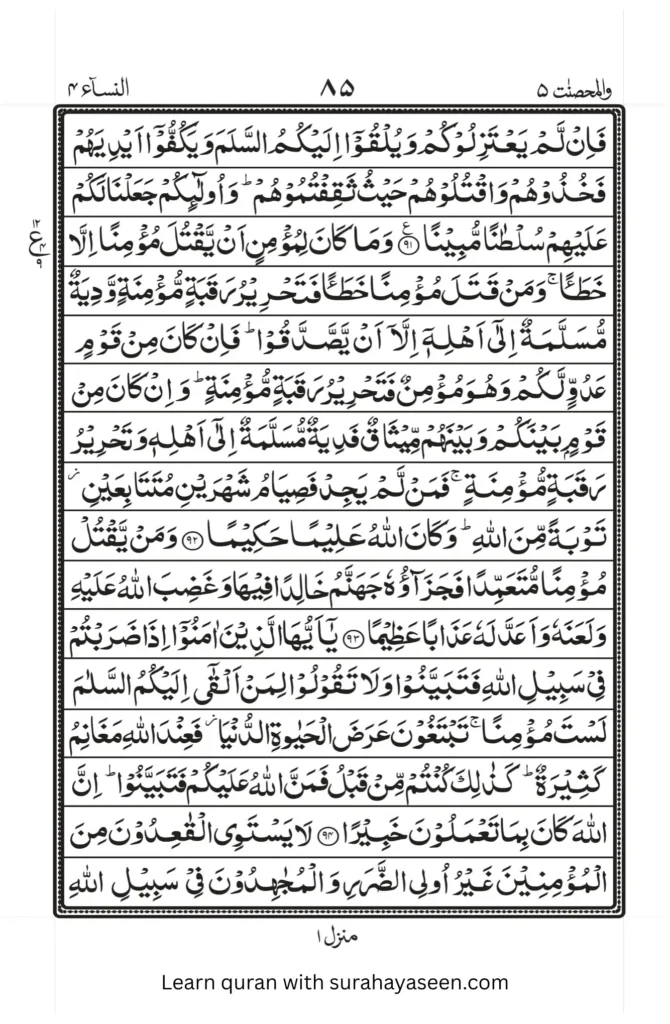 والمحصنٰت ۵ ۸۵ النساء ۴
فَاِنْ لَّمْ یَعْتَزِلُوْكُمْ وَیُلْقُوْۤا اِلَیْكُمُ السَّلَمَ وَیَكُفُّوْۤا اَیْدِیَهُمْ
فَخُذُوْهُمْ وَاقْتُلُوْهُمْ حَیْثُ ثَقِفْتُمُوْهُمْ ؕ وَاُولٰٓىِٕكُمْ جَعَلْنَا لَكُمْ
عَلَیْهِمْ سُلْطٰنًا مُّبِیْنًا ﴿۹۱﴾ ع وَمَا كَانَ لِمُؤْمِنٍ اَنْ یَّقْتُلَ مُؤْمِنًا اِلَّا
۱۲ ع ۴ ۹
خَطَـًٔا ۚ وَمَنْ قَتَلَ مُؤْمِنًا خَطَـًٔا فَتَحْرِیْرُ رَقَبَةٍ مُّؤْمِنَةٍ وَّدِیَةٌ
مُّسَلَّمَةٌ اِلٰۤی اَهْلِهٖۤ اِلَّاۤ اَنْ یَّصَّدَّقُوْا ؕ فَاِنْ كَانَ مِنْ قَوْمٍ
عَدُوٍّ لَّكُمْ وَهُوَ مُؤْمِنٌ فَتَحْرِیْرُ رَقَبَةٍ مُّؤْمِنَةٍ ؕ وَاِنْ كَانَ مِنْ
قَوْمٍۭ بَیْنَكُمْ وَبَیْنَهُمْ مِّیْثَاقٌ فَدِیَةٌ مُّسَلَّمَةٌ اِلٰۤی اَهْلِهٖ وَتَحْرِیْرُ
رَقَبَةٍ مُّؤْمِنَةٍ ۚ فَمَنْ لَّمْ یَجِدْ فَصِیَامُ شَهْرَیْنِ مُتَتَابِعَیْنِ ؗ
تَوْبَةً مِّنَ اللّٰهِ ؕ وَكَانَ اللّٰهُ عَلِیْمًا حَكِیْمًا ﴿۹۲﴾ وَمَنْ یَّقْتُلْ
مُؤْمِنًا مُّتَعَمِّدًا فَجَزَآؤُهٗ جَهَنَّمُ خَالِدًا فِیْهَا وَغَضِبَ اللّٰهُ عَلَیْهِ
وَلَعَنَهٗ وَاَعَدَّ لَهٗ عَذَابًا عَظِیْمًا ﴿۹۳﴾ یٰۤاَیُّهَا الَّذِیْنَ اٰمَنُوْۤا اِذَا ضَرَبْتُمْ
فِیْ سَبِیْلِ اللّٰهِ فَتَبَیَّنُوْا وَلَا تَقُوْلُوْا لِمَنْ اَلْقٰۤی اِلَیْكُمُ السَّلٰمَ
لَسْتَ مُؤْمِنًا ۚ تَبْتَغُوْنَ عَرَضَ الْحَیٰوةِ الدُّنْیَا ؗ فَعِنْدَ اللّٰهِ مَغَانِمُ
كَثِیْرَةٌ ؕ كَذٰلِكَ كُنْتُمْ مِّنْ قَبْلُ فَمَنَّ اللّٰهُ عَلَیْكُمْ فَتَبَیَّنُوْا ؕ اِنَّ
اللّٰهَ كَانَ بِمَا تَعْمَلُوْنَ خَبِیْرًا ﴿۹۴﴾ لَا یَسْتَوِی الْقٰعِدُوْنَ مِنَ
الْمُؤْمِنِیْنَ غَیْرُ اُولِی الضَّرَرِ وَالْمُجٰهِدُوْنَ فِیْ سَبِیْلِ اللّٰهِ
منزل ۱
Learn quran with surahayaseen.com